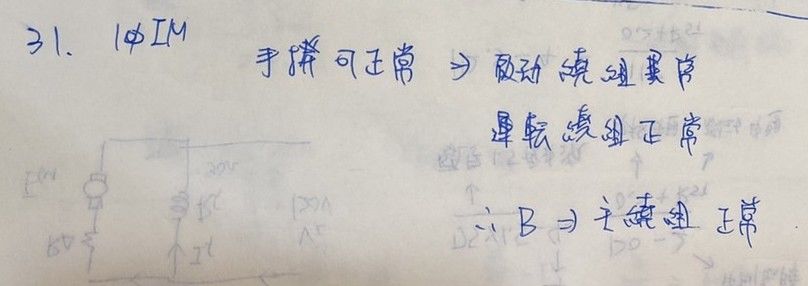 31. 1φIM
手撥可正常 ⇒ 啟动繞組異常
運転繞組正常
∴ B ⇒ 主繞組正常